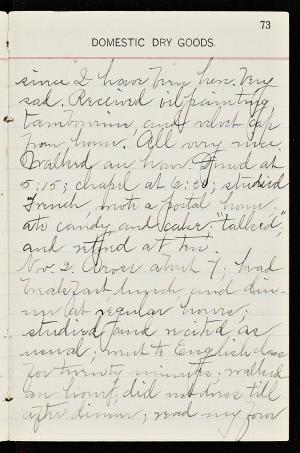 73
DOMESTIC DRY GOODS.
since I have been here. Very
sad. Received oil painting,
tambourine, and velvet cap
from home. All very nice.
Walked an hour. Dined at
5:15; chapel at 6:30; studied
French, wrote a postal home,
ate candy and cake, "talked",
and retired at ten.
Nov. 2. Arose about 7; had
breakfast, lunch, and din-
ner at regular hours;
studied and recited as
usual; went to English class
for twenty minutes. walked
an hour; did not dress till
after dinner; read my four